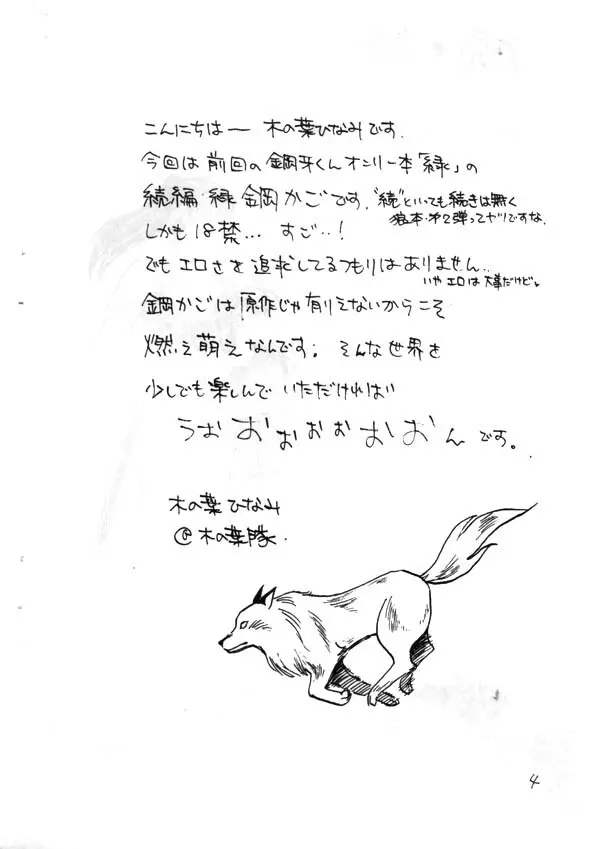 こんにちはー 木の葉ひなみです.
今回は前回の鋼牙くんオンリー本「緑」の
続編・緑鋼かごです. "続"といっても続きは無く
しかも18禁… すご…!
でもエロさを追求してるつもりはありません..
いやエロは大事だけど。
鋼かごは原作じゃ有りえないからこそ
燃え萌えなんです。そんな世界を
少しでも楽しんでいただければ
うおおおおおおおんです。
木の葉ひなみ
@木の葉隊.
4